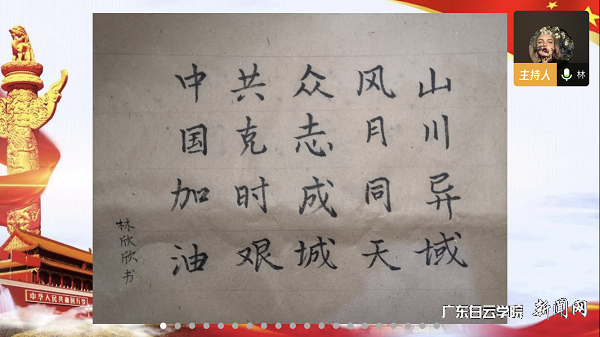 山川异域
风月同天
众志成城
共克时艰
中国加油
林欣欣书
主持人
林
中华人民共和国万岁
广东白云学院 新闻网